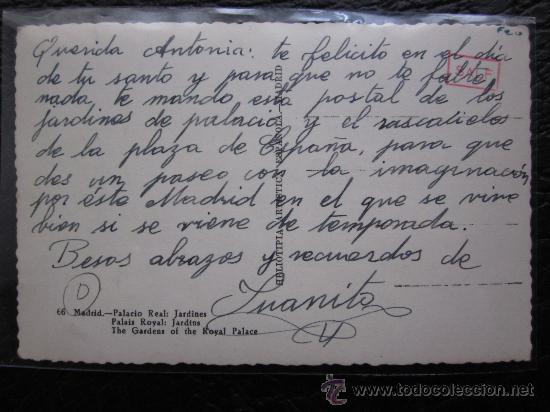 Querida Antonia: te felicito en el día
de tu santo y para que no te falte
nada te mando esta postal de los
jardines de palacio y el rascacielos
de la plaza de España, para que
des un paseo con la imaginación
por este Madrid en el que se vive
bien si se viene de temporada.
Besos abrazos y recuerdos de
Juanita
D
66 Madrid.—Palacio Real: Jardines
Palais Royal: Jardins
The Gardens of the Royal Palace
HELIOTIPIA ARTISTICA ESPAÑOLA - MADRID
www.todocoleccion.net